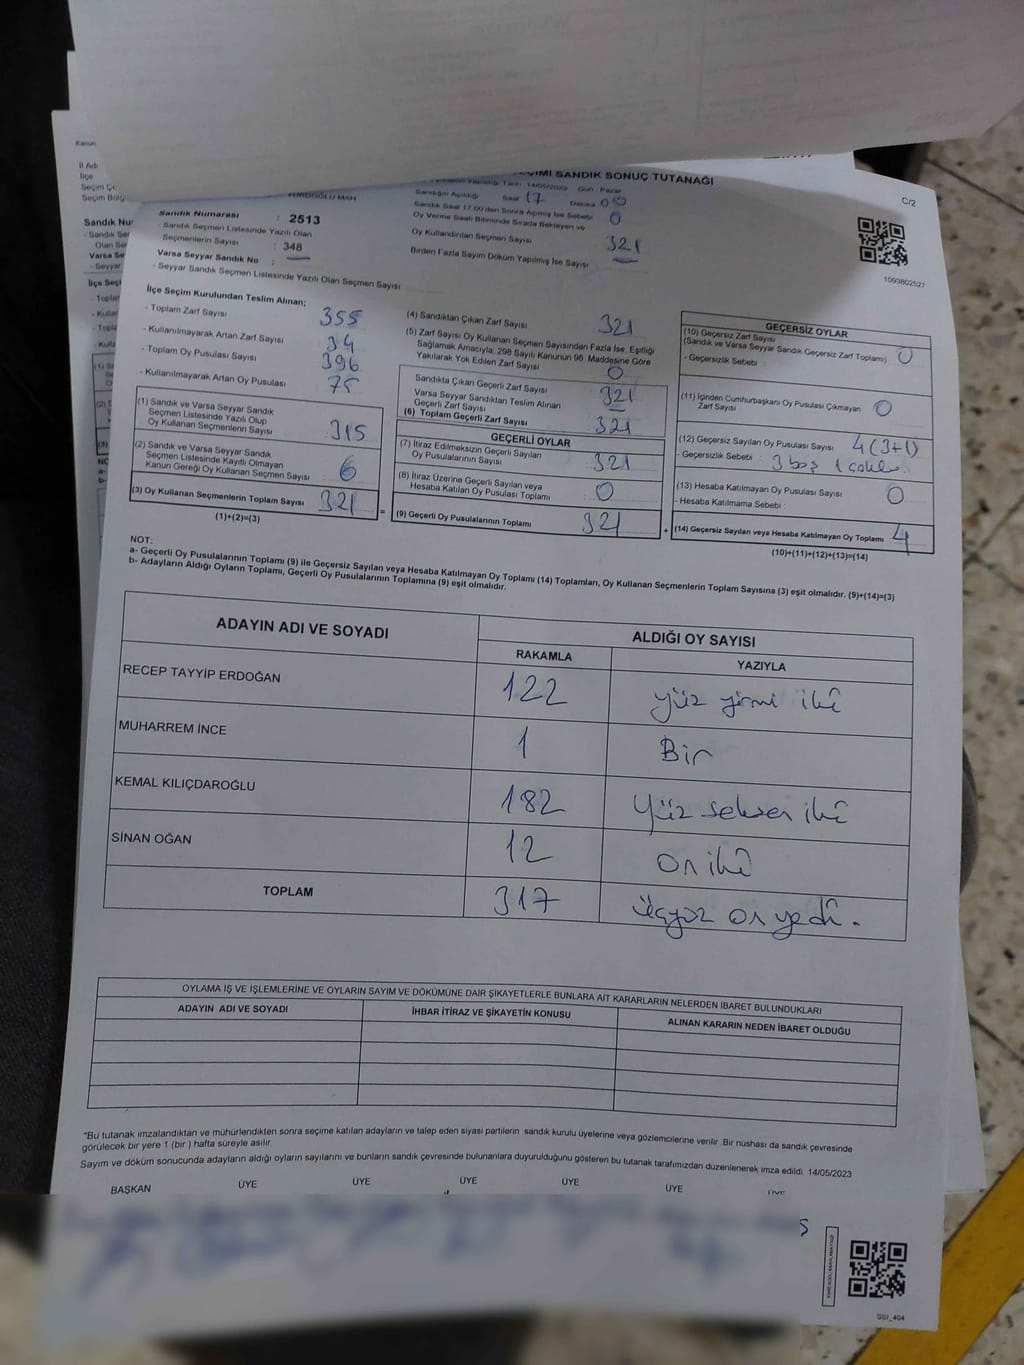 SANDIK SONUÇ TUTANAĞI
C/2
1093802527
Kanun
İl Adı
İlçe
Seçim Çe
Seçim Bölg
Sandık Numarası : 2513
- Sandık Seçmen Listesinde Yazılı Olan
Seçmenlerin Sayısı : 348
Varsa Seyyar Sandık No :
- Seyyar Sandık Seçmen Listesinde Yazılı Olan Seçmen Sayısı
14/05/2023 Gün Pazar
Sandığın Açıldığı Saat 17 Dakika 00
Sandık Saat 17:00'den Sonra Açılmış İse Sebebi
Oy Verme Saati Bitiminde Sırada Bekleyen ve
Oy Kullandırılan Seçmen Sayısı 0
321
Birden Fazla Sayım Döküm Yapılmış İse Sayısı
İlçe Seçim Kurulundan Teslim Alınan;
- Toplam Zarf Sayısı 355
- Kullanılmayarak Artan Zarf Sayısı 34
- Toplam Oy Pusulası Sayısı 396
- Kullanılmayarak Artan Oy Pusulası 75
(1) Sandık ve Varsa Seyyar Sandık
Seçmen Listesinde Yazılı Olup
Oy Kullanan Seçmenlerin Sayısı 315
(2) Sandık ve Varsa Seyyar Sandık
Seçmen Listesinde Kayıtlı Olmayan
Kanun Gereği Oy Kullanan Seçmen Sayısı 6
(3) Oy Kullanan Seçmenlerin Toplam Sayısı 321
(1)+(2)=(3)
(4) Sandıktan Çıkan Zarf Sayısı 321
(5) Zarf Sayısı Oy Kullanan Seçmen Sayısından Fazla İse, Eşitliği
Sağlamak Amacıyla; 298 Sayılı Kanunun 98. Maddesine Göre
Yakılarak Yok Edilen Zarf Sayısı 0
Sandıkta Çıkan Geçerli Zarf Sayısı 321
Varsa Seyyar Sandıktan Teslim Alınan
Geçerli Zarf Sayısı
(6) Toplam Geçerli Zarf Sayısı 321
GEÇERLİ OYLAR
(7) İtiraz Edilmeksizin Geçerli Sayılan
Oy Pusulalarının Sayısı 321
(8) İtiraz Üzerine Geçerli Sayılan veya
Hesaba Katılan Oy Pusulası Toplamı 0
(9) Geçerli Oy Pusulalarının Toplamı 321
GEÇERSİZ OYLAR
(10) Geçersiz Zarf Sayısı
(Sandık ve Varsa Seyyar Sandık Geçersiz Zarf Toplamı) 0
- Geçersizlik Sebebi :
(11) İçinden Cumhurbaşkanı Oy Pusulası Çıkmayan
Zarf Sayısı 0
(12) Geçersiz Sayılan Oy Pusulası Sayısı 4 (3+1)
- Geçersizlik Sebebi : 3 boş 1
(13) Hesaba Katılmayan Oy Pusulası Sayısı 0
- Hesaba Katılmama Sebebi :
(14) Geçersiz Sayılan veya Hesaba Katılmayan Oy Toplamı 4
(10)+(11)+(12)+(13)=(14)
NOT:
a- Geçerli Oy Pusulalarının Toplamı (9) ile Geçersiz Sayılan veya Hesaba Katılmayan Oy Toplamı (14) Toplamları, Oy Kullanan Seçmenlerin Toplam Sayısına (3) eşit olmalıdır. (9)+(14)=(3)
b- Adayların Aldığı Oyların Toplamı, Geçerli Oy Pusulalarının Toplamına (9) eşit olmalıdır.
ADAYIN ADI VE SOYADI
ALDIĞI OY SAYISI
RAKAMLA YAZIYLA
RECEP TAYYİP ERDOĞAN 122 yüz yirmi iki
MUHARREM İNCE 1 Bir
KEMAL KILIÇDAROĞLU 182 Yüz seksen iki
SİNAN OĞAN 12 on iki
TOPLAM 317 üçyüz on yedi.
OYLAMA İŞ VE İŞLEMLERİNE VE OYLARIN SAYIM VE DÖKÜMÜNE DAİR ŞİKAYETLERLE BUNLARA AİT KARARLARIN NELERDEN İBARET BULUNDUKLARI
ADAYIN ADI VE SOYADI İHBAR İTİRAZ VE ŞİKAYETİN KONUSU ALINAN KARARIN NEDEN İBARET OLDUĞU
*Bu tutanak imzalandıktan ve mühürlendikten sonra seçime katılan adayların ve talep eden siyasi partilerin sandık kurulu üyelerine veya gözlemcilerine verilir. Bir nüshası da sandık çevresinde
görülecek bir yere 1 (bir ) hafta süreyle asılır.
Sayım ve döküm sonucunda adayların aldığı oyların sayılarını ve bunların sandık çevresinde bulunanlara duyurulduğunu gösteren bu tutanak tarafımızdan düzenlenerek imza edildi. 14/05/2023
BAŞKAN ÜYE ÜYE ÜYE ÜYE ÜYE ÜYE
SSI_404